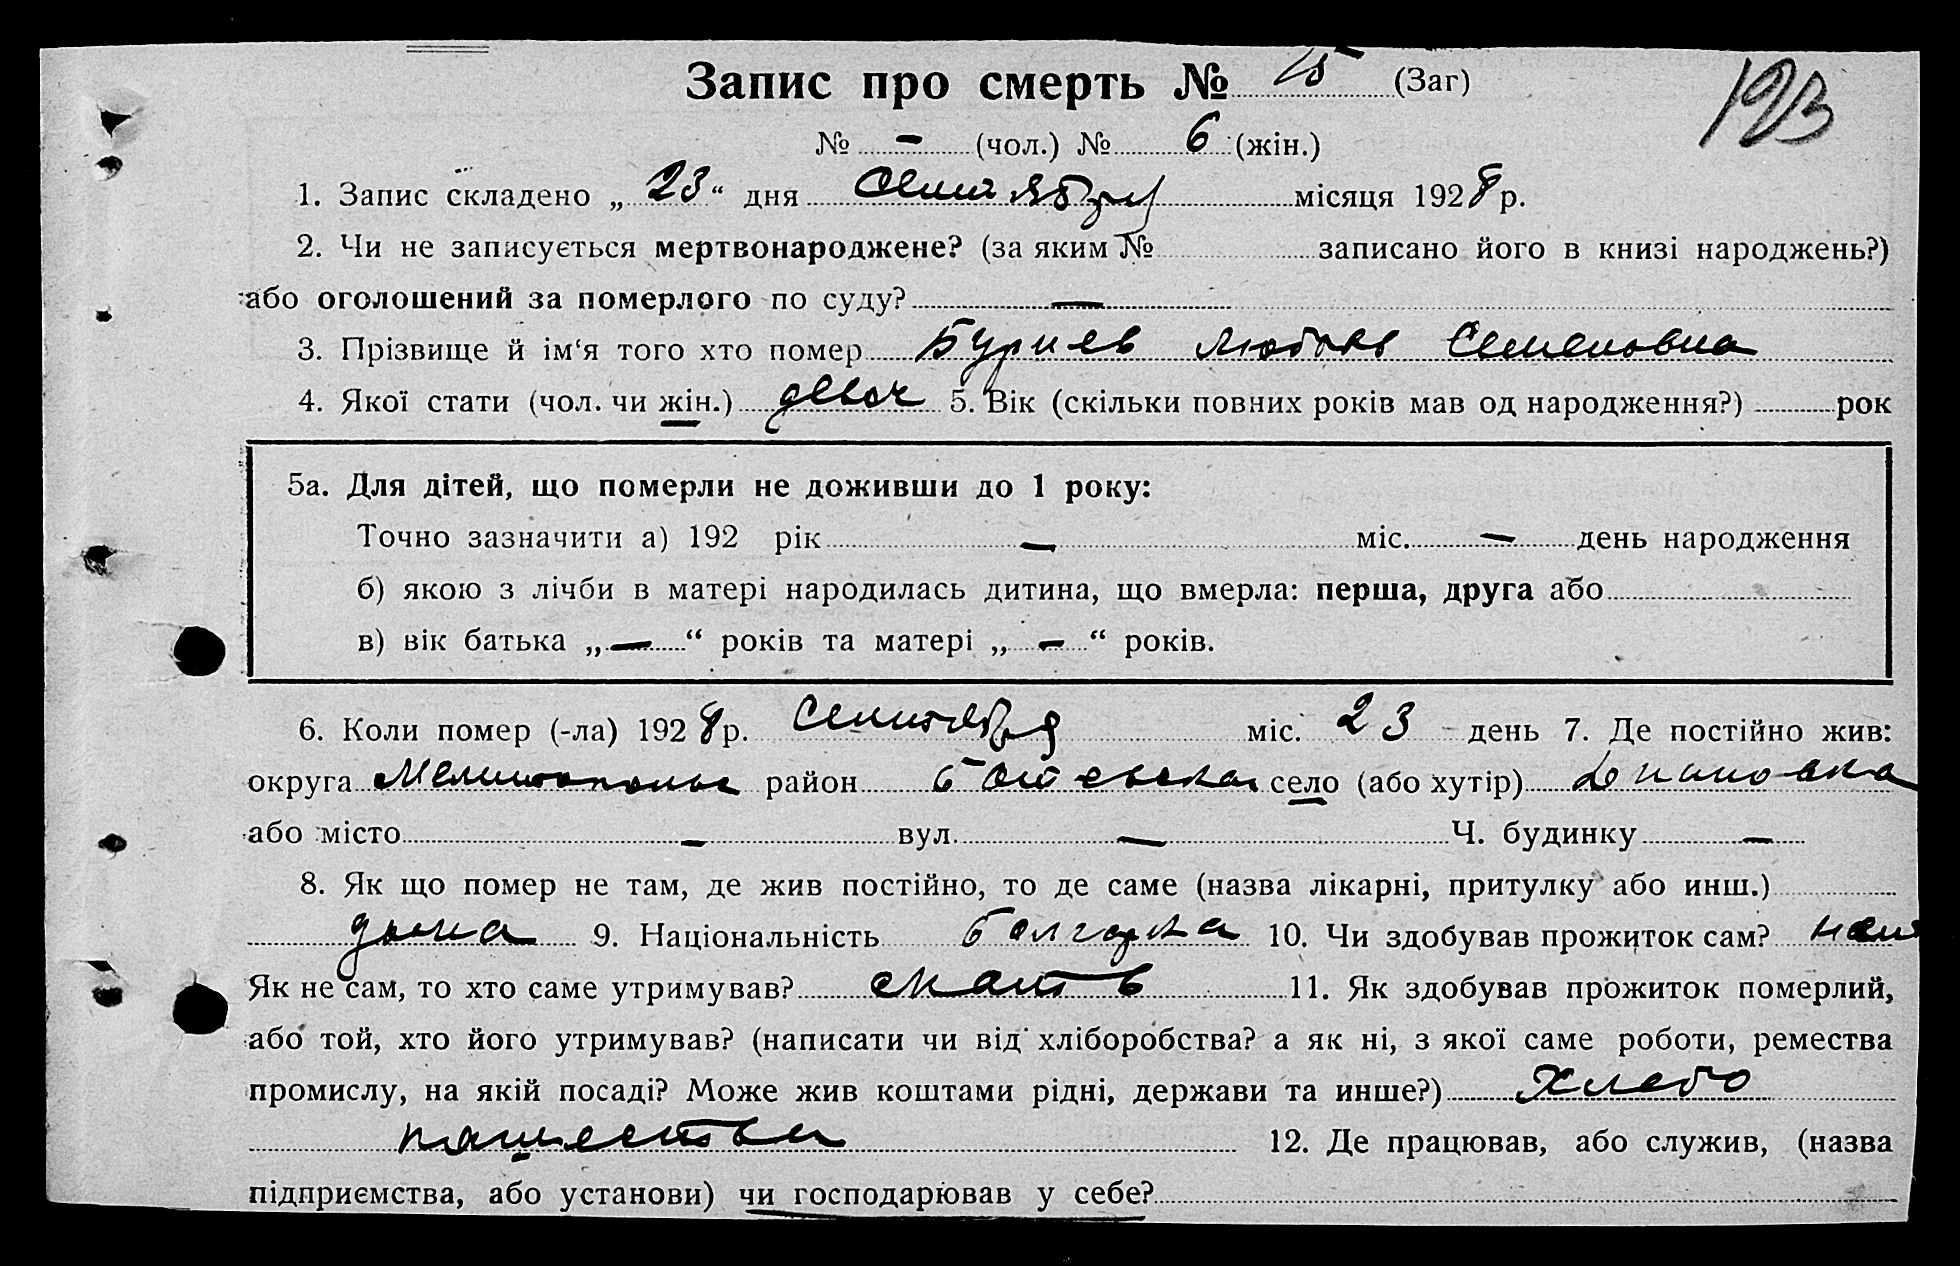 Запис про смерть № 15 (Заг)
123
№ – (чол.) № 6 (жін.)
1. Запис складено „23“ дня Сентября місяця 1928 р.
2. Чи не записується мертвонароджене? (за яким № записано його в книзі народжень?)
або оголошений за померлого по суду? –
3. Прізвище й ім'я того хто помер Любовь Семеновна
4. Якої стати (чол. чи жін.) 5. Вік (скільки повних років мав од народження?) рок
5а. Для дітей, що померли не доживши до 1 року:
Точно зазначити а) 192 рік – міс. – день народження
б) якою з лічби в матері народилась дитина, що вмерла: перша, друга або
в) вік батька „–“ років та матері „–“ років.
6. Коли помер (-ла) 1928 р. Сентября міс. 23 день 7. Де постійно жив:
округа район село (або хутір)
або місто – вул. – Ч. будинку –
8. Як що помер не там, де жив постійно, то де саме (назва лікарні, притулку або инш.)
дома 9. Національність болгарка 10. Чи здобував прожиток сам? нет
Як не сам, то хто саме утримував? мать 11. Як здобував прожиток померлий,
або той, хто його утримував? (написати чи від хліборобства? а як ні, з якої саме роботи, ремества
промислу, на якій посаді? Може жив коштами рідні, держави та инше?) Хлебо
пашеством 12. Де працював, або служив, (назва
підприємства, або установи) чи господарював у себе?